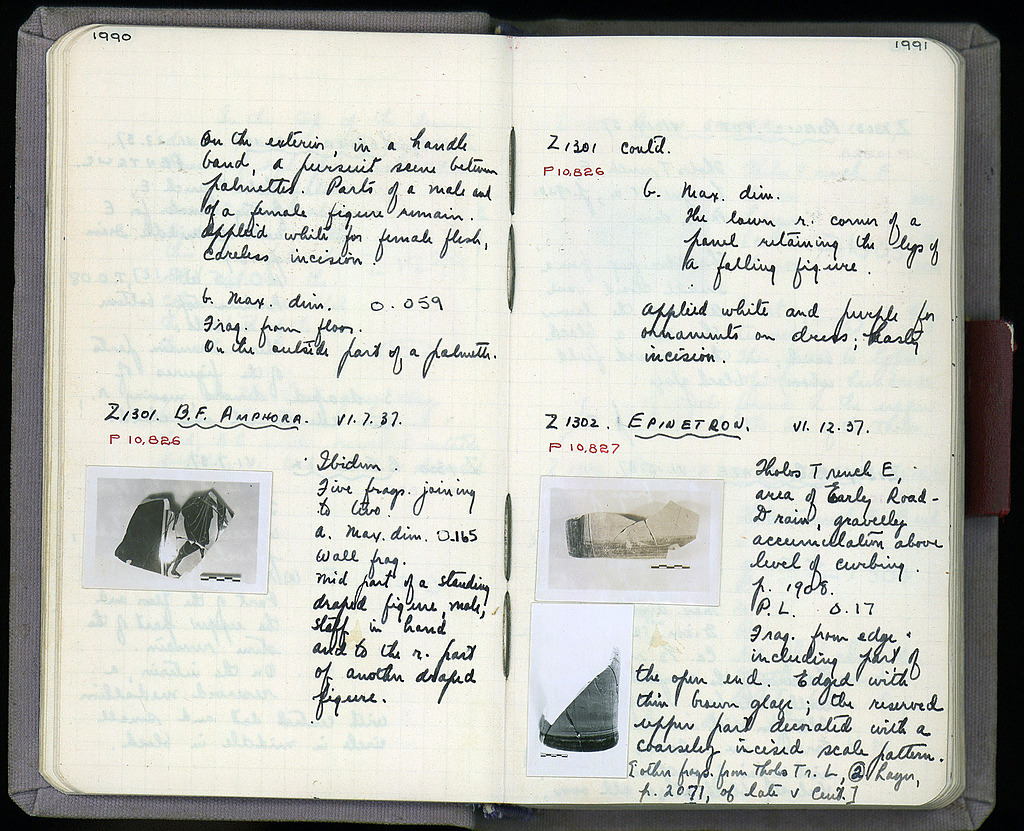 1990
On the exterior, in a handle
band, a pursuit scene between
palmettes. Parts of a male and
of a female figure remain.
Applied white for female flesh,
careless incision.
b. Max. dim. 0.059
Frag. from floor.
On the outside part of a palmette.
Z1301. B.F. AMPHORA. VI.7.37.
P 10,826
Ibidem
Five frags. joining
to two.
a. Max. dim. 0.165
Wall frag.
Mid part of a standing
draped figure, male,
staff in hand
and to the r. part
of another draped
figure.
1991
Z1301 cont'd.
P 10,826
b. Max. dim.
The lower r. corner of a
panel retaining the legs of
a falling figure.
Applied white and purple for
ornaments on dress; hasty
incision.
Z1302. EPINETRON. VI.12.37.
P 10,827
Tholos Trench E,
area of Early Road-
Drain, gravelly
accumulation above
level of curbing.
p. 1908.
P.L. 0.17
Frag. from edge
including part of
the open end. Edged with
thin brown glaze; the reserved
upper part decorated with a
coarsely incised scale pattern.
[other frags. from Tholos Tr. L, ② Layer,
p. 2071, of late V cent.]